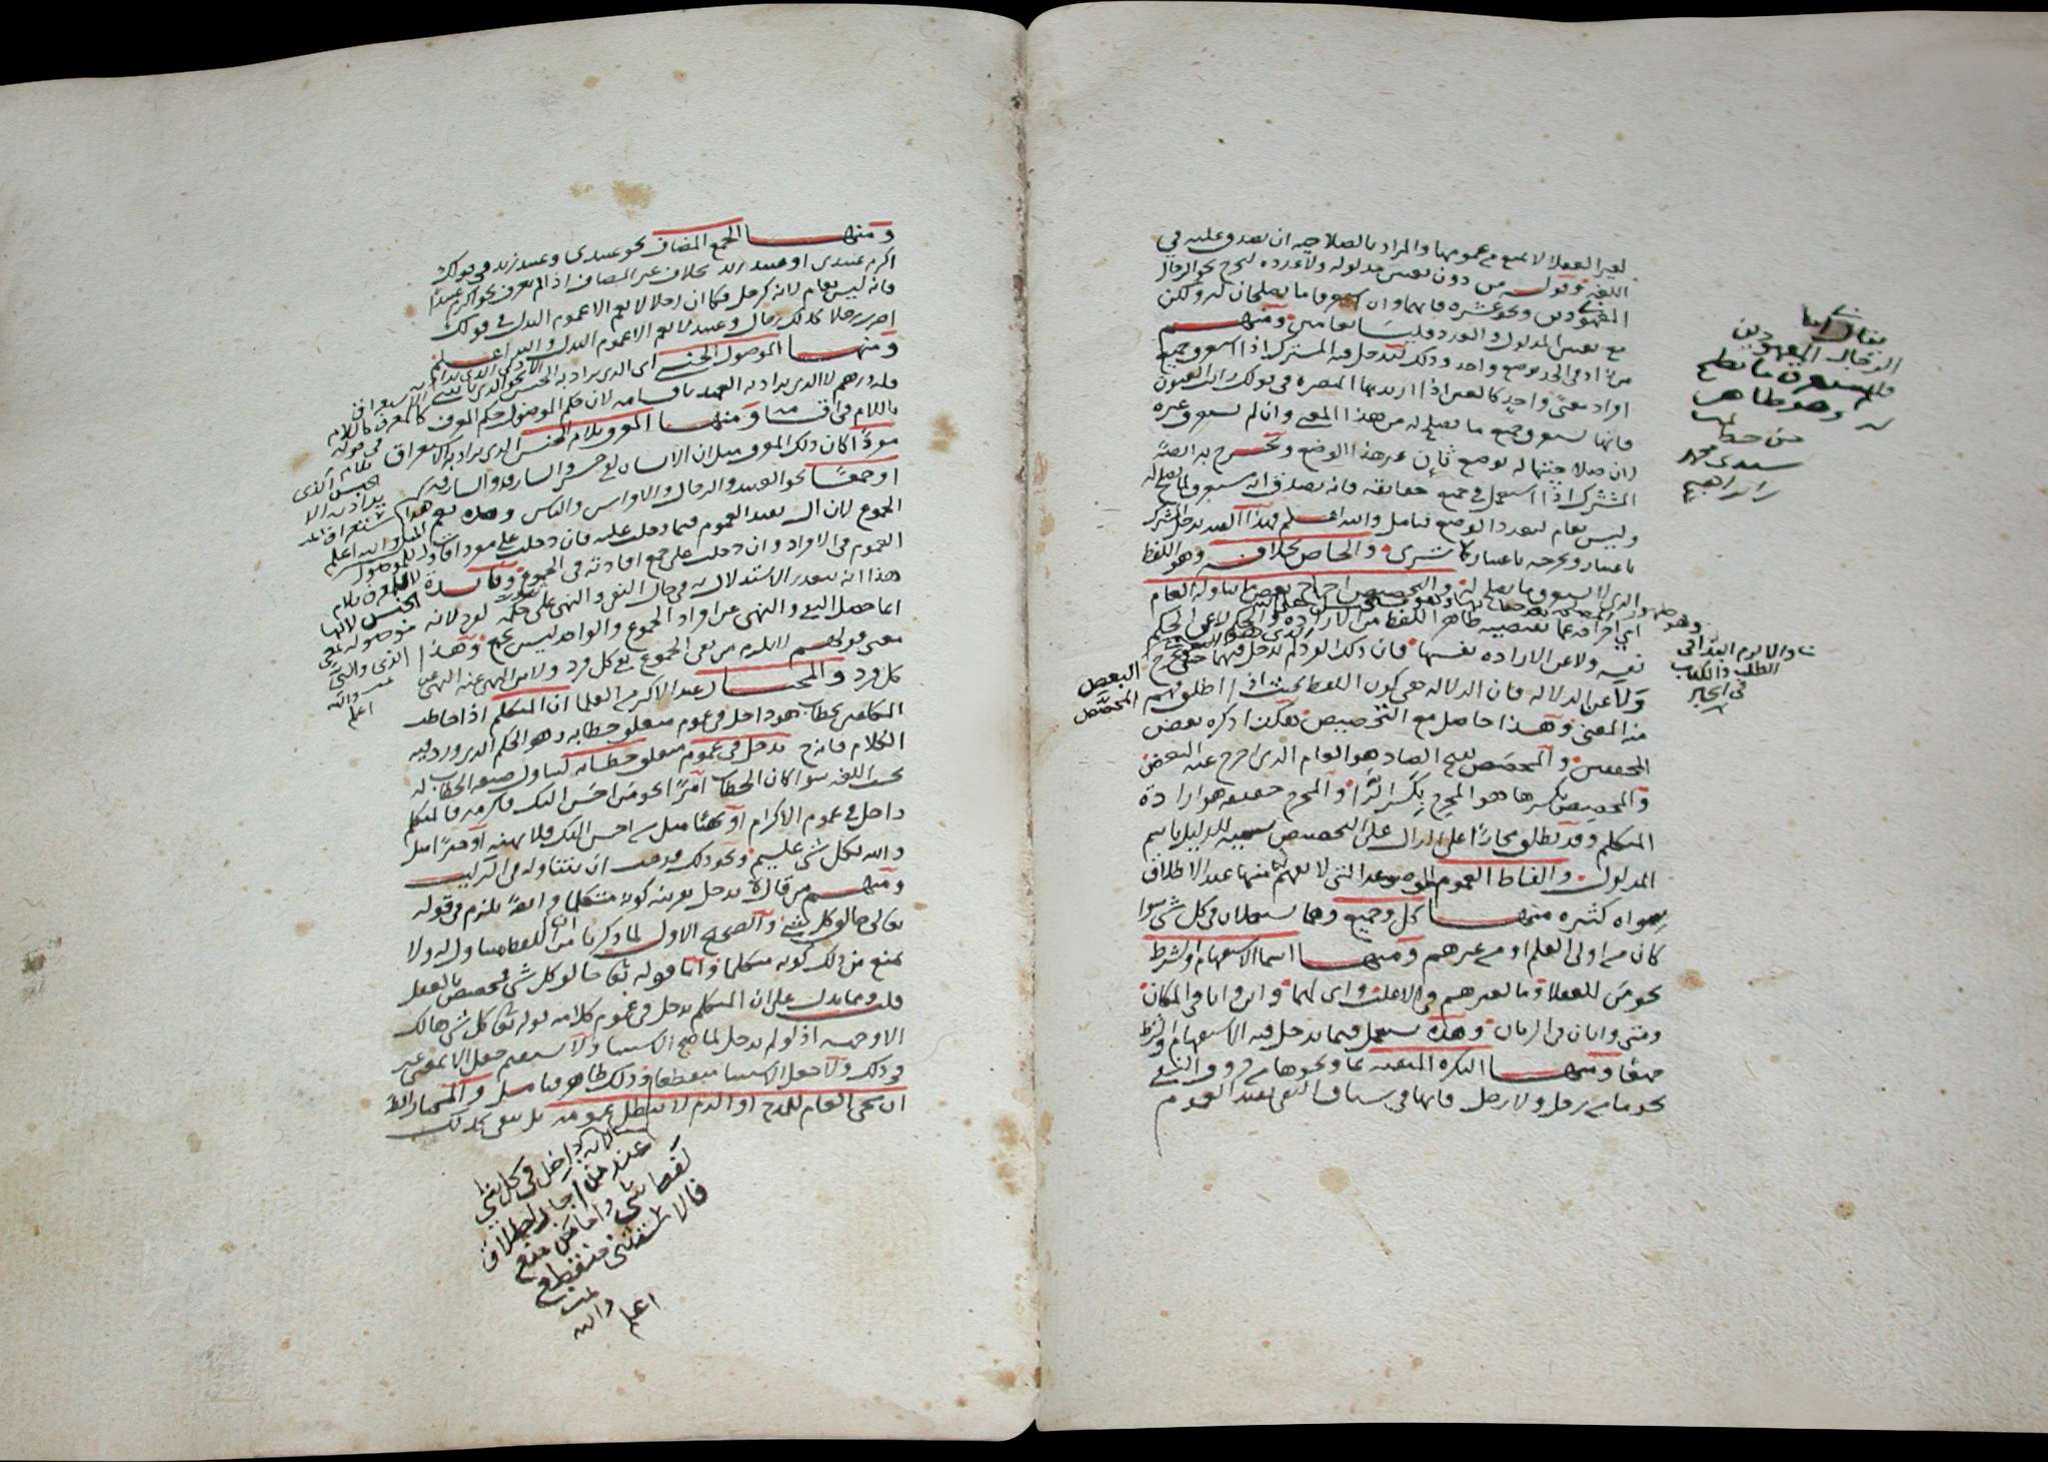 لغير العقلا لا يمنع من عمومها والمراد بالصلاحيه ان يصدق عليه في
اللغه وقوله من دون تعيين مدلوله ولا عدده ليخرج نحو الرجال
المعهودين ونحو عشره فانهما وان استغرقا ما يصلحان له ولكن
مع تعيين المدلول والعدد فليسا بعامين ومنهم
من زاد في الحد بوضع واحد وذلك ليدخل فيه المشترك اذا استغرق جميع
افراد معنى واحد كالعين اذا اريد بها المبصره في قولك رايت العيون
فانها تستغرق جميع ما يصلح له من هذا المعنى وان لم تستغرق غيره
لان صلاحيتها له بوضع ثان غير هذا الوضع وتخرج به ايضا
المشترك اذا استعمل في جميع حقايقه فانه يصدق انه مستغرق لما يصلح له
وليس بعام لتعدد الوضع فتامل والله اعلم فهذا القيد يدخل المشترك
باعتبار ويخرجه باعتبار كما ترى والخاص بخلافه وهو اللفظ
الذي لا يستغرق ما يصلح له والتخصيص اخراج بعض ما تناوله العام
اي اخراجه عما يقتضيه ظاهر اللفظ من الاراده والحكم لا عن الحكم
نفسه ولا عن الاراده نفسها فان ذلك الفرد لم يدخل فيهما حتى يخرج
ولا عن الدلاله فان الدلاله هي كون اللفظ بحيث اذا اطلق فهم
منه المعنى وهذا حاصل مع التخصيص هكذا ذكره بعض
المحققين والمخصص بفتح الصاد هو العام الذي اخرج عنه البعض
والمخصص بكسرها هو المخرج بكسر الرا والمخرج حقيقه هو ارادة
المتكلم وقد يطلق مجازا على الدال على التخصيص تسميه للدليل باسم
المدلول والفاظ العموم الموضوعه التي لا يفهم منها عند الاطلاق
سواه كثيره منها كل وجميع وهما يستعملان في كل شي سوا
كان من اولى العلم او من غيرهم ومنها اسما الاستفهام والشرط
نحو من للعقلا وما لغيرهم في الاغلب واي لهما واين وانا في المكان
ومتى وايان في الزمان وهذه تستعمل فيما يدخل فيه الاستفهام والشرط
جميعا ومنها النكره المنفيه بما ونحوها من حروف النفي
نحو ما من رجل ولا رجل فانها في سياق النفي تفيد العموم
يقال ايضا
الرجال المعهودين
قد استغرق ما يصلح
له وهو ظاهر
من خط
سيدي محمد
ابن ابراهيم
الطلب والكذب
في الخبر
البعض
المخصص
ومنها الجمع المضاف نحو عبيدي وعبيد زيد في قولك
اكرم عبيدي او عبيد زيد بخلاف غير المضاف اذا لم يعرف نحو اكرم عبيدا
فانه ليس بعام لانه كرجل فكما ان رجلا لا يعم الا عموم البدل في قولك
اضرب رجلا كذلك رجال وعبيد لا يعم الا عموم البدل والله اعلم
ومنها الموصول الجنسي اي الذي يراد به الجنس نحو الذي ياتيني
فله درهم لا الذي يراد به العهد باقسامه لان حكم الموصول حكم المعرف
باللام في اقسامه ومنها المعرف بلام الجنس الذي يراد به الاستغراق
مفردا كان ذلك المعرف مثل ان الانسان لفي خسر والسارق والسارقه
او جمعا نحو العبيد والرجال والافراس والناس
الجموع لان ال تفيد العموم فيما دخلت عليه فان دخلت على مفرد افادت
العموم في الافراد وان دخلت على جمع افادته في الجموع وفائدة
هذا انه يتعذر الاستدلال به في حال النفي والنهي على حكم مفرد لانه
انما حصل النفي والنهي عن افراد الجموع والواحد ليس بجمع وهذا
معنى قولهم لا يلزم من نفي الجموع نفي كل فرد ولا من النهي عنه النهي عن
كل فرد والمختار عند الاكثر من العلما ان المتكلم اذا خاطب
المكلفين بخطاب هو داخل في عموم متعلق خطابه وهو الحكم الذي ورد فيه
الكلام فانه يدخل في عموم متعلق خطابه لتناول صيغه الخطاب له
بحسب اللغه سوا كان الخطاب امرا نحو من احسن اليك فاكرمه فالمتكلم
داخل في عموم الاكرام او نهيا مثل من احسن اليك فلا تهنه او خبرا مثل
والله بكل شي عليم ونحو ذلك فوجب ان يتناوله في التركيب
ومنهم من قال لا يدخل بقرينه كونه متكلما وايضا يلزم في قوله
تعالى خالق كل شي والصحيح الاول لما ذكرنا من ان اللفظ متناول له ولا
يمنع من ذلك كونه متكلما واما قوله تعالى خالق كل شي فمخصص بالعقل
قلت ومما يدل على ان المتكلم يدخل في عموم كلامه قوله تعالى كل شي هالك
الا وجهه اذ لو لم يدخل لما صح الاستثنا ولا يستقيم جعل الا بمعنى غير
في ذلك ولا جعل الاستثنا منقطعا وذلك ظاهر فتامل والمختار ايضا
ان مجي العام للمدح او الذم لا يبطل عمومه بل يبقى كذلك
لانه داخل في كل شي
عند من اجاز اطلاق
لفظ شي واما من منع
فالاستثنا منقطع
تمت
والله
اعلم